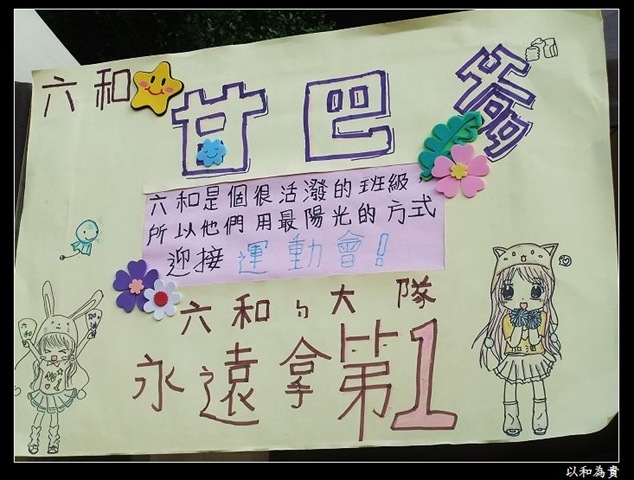 六和
甘巴爹
六和是個很活潑的班級
所以他們用最陽光的方式
迎接運動會!
六和ㄉ大隊
永遠拿第1
六和
加油
以和為貴